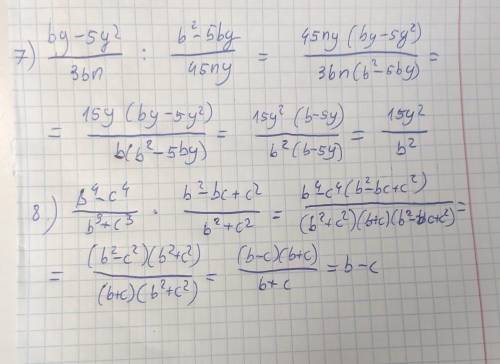 7) (by-5y²)/(3bn) : (b²-5by)/(45ny) = (45ny(by-5y²))/(3bn(b²-5by)) =
= (15y(by-5y²))/(b(b²-5by)) = (15y²(b-5y))/(b²(b-5y)) = 15y²/b²
8.) (b⁴-c⁴)/(b³+c³) · (b²-bc+c²)/(b²+c²) = (b⁴-c⁴(b²-bc+c²))/((b²+c²)(b+c)(b²-bc+c²)) =
= ((b²-c²)(b²+c²))/((b+c)(b²+c²)) = ((b-c)(b+c))/(b+c) = b-c